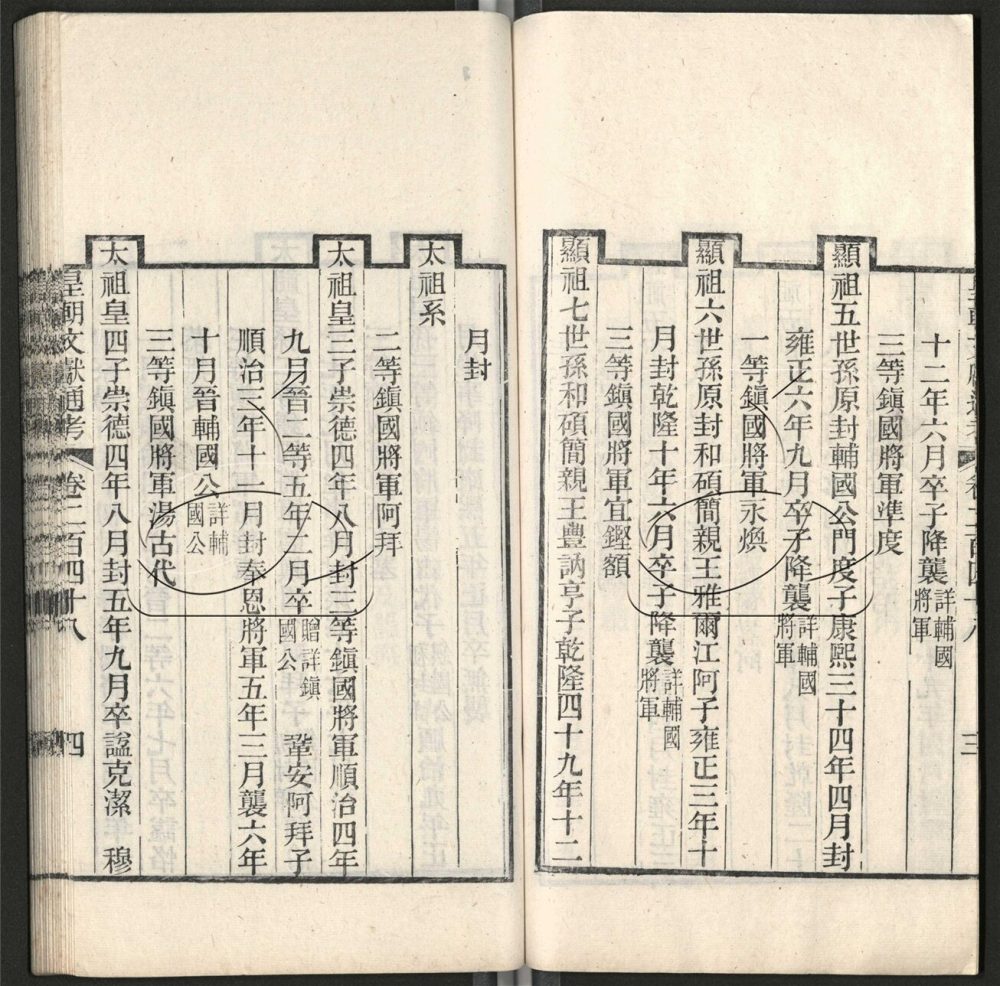 十二年六月卒子降襲詳輔國將軍
三等鎮國將軍準度
顯祖五世孫原封輔國公門度子康熙三十四年四月封
雍正六年九月卒子降襲詳輔國將軍
一等鎮國將軍永煥
顯祖六世孫原封和碩簡親王雅爾江阿子雍正三年十
月封乾隆十年六月卒子降襲詳輔國將軍
三等鎮國將軍宜鏗額
顯祖七世孫和碩簡親王豐訥亨子乾隆四十九年十二
月封
太祖系
二等鎮國將軍阿拜
太祖皇三子崇德四年八月封三等鎮國將軍順治四年
九月晉二等五年二月卒贈詳鎮國公 鞏安阿拜子
順治三年十一月封奉恩將軍五年三月襲六年
十月晉輔國公詳輔國公
三等鎮國將軍湯古代
太祖皇四子崇德四年八月封五年九月卒諡克潔 穆
皇朝文獻通考 卷二百四十八 四